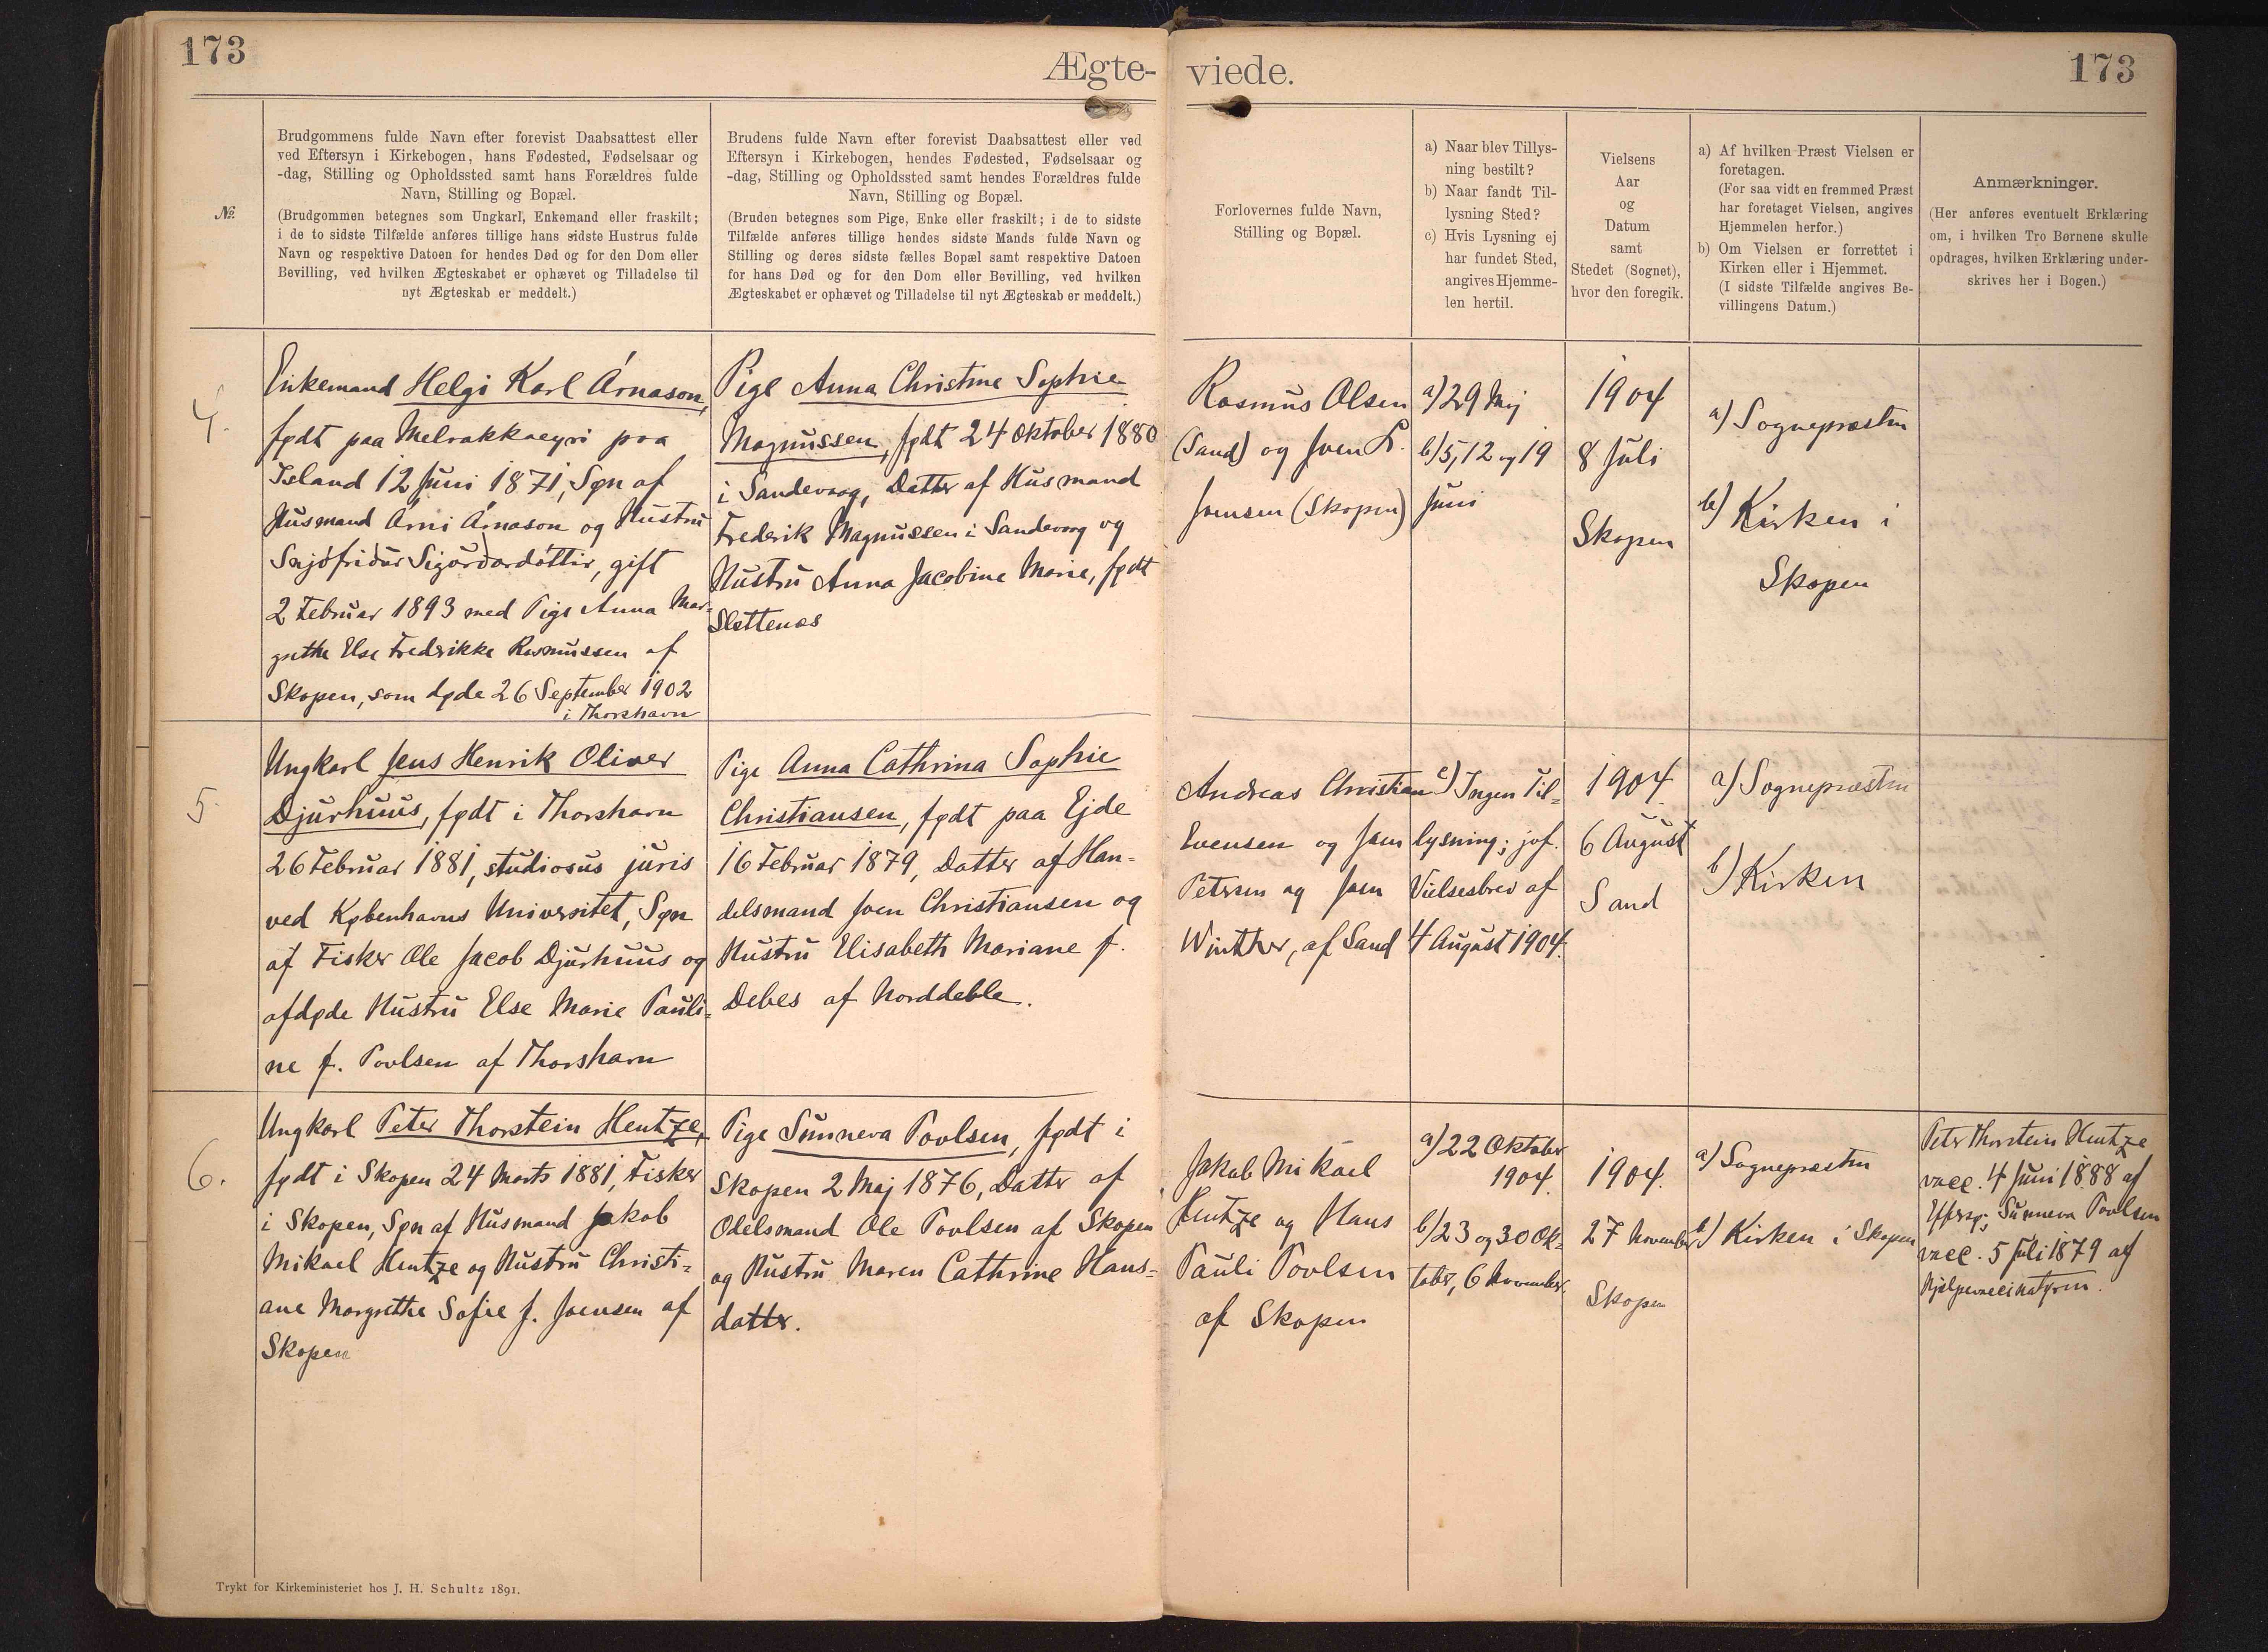 173
Ægte-
viede.
173
№
Brudgommens fulde Navn efter forevist Daabsattest eller
ved Eftersyn i Kirkebogen, hans Fødested, Fødselsaar og
-dag, Stilling og Opholdssted samt hans Forældres fulde
Navn, Stilling og Bopæl.
(Brudgommen betegnes som Ungkarl, Enkemand eller fraskilt;
i de to sidste Tilfælde anføres tillige hans sidste Hustrus fulde
Navn og respektive Datoen for hendes Død og for den Dom eller
Bevilling, ved hvilken Ægteskabet er ophævet og Tilladelse til
nyt Ægteskab er meddelt.)
Brudens fulde Navn efter forevist Daabsattest eller ved
Eftersyn i Kirkebogen, hendes Fødested, Fødselsaar og
-dag, Stilling og Opholdssted samt hendes Forældres fulde
Navn, Stilling og Bopæl.
(Bruden betegnes som Pige, Enke eller fraskilt; i de to sidste
Tilfælde anføres tillige hendes sidste Mands fulde Navn og
Stilling og deres sidste fælles Bopæl samt respektive Datoen
for hans Død og for den Dom eller Bevilling, ved hvilken
Ægteskabet er ophævet og Tilladelse til nyt Ægteskab er meddelt.)
Forlovernes fulde Navn,
Stilling og Bopæl.
a) Naar blev Tillys-
ning bestilt?
b) Naar fandt Til-
lysning Sted?
c) Hvis Lysning ej
har fundet Sted,
angives Hjemme-
len hertil.
Vielsens
Aar
og
Datum
samt
Stedet (Sognet),
hvor den foregik.
a) Af hvilken Præst Vielsen er
foretagen.
(For saa vidt en fremmed Præst
har foretaget Vielsen, angives
Hjemmelen herfor.)
b) Om Vielsen er forrettet i
Kirken eller i Hjemmet.
(I sidste Tilfælde angives Be-
villingens Datum.)
Anmærkninger.
(Her anføres eventuelt Erklæring
om, i hvilken Tro Børnene skulle
opdrages, hvilken Erklæring under-
skrives her i Bogen.)
4.
Enkemand Helgi Karl Árnason,
født paa Melrakkaeyri paa
Island 12 Juni 1871, Søn af
Husmand Árni Árnason og Hustru
Snjófriður Sigurðardóttir, gift
2 Februar 1893 med Pige Anna Mar-
grethe Else Fredrikke Rasmussen af
Skopen, som døde 26 September 1902
i Thorshavn
Pige Anna Christine Sophie
Magnussen, født 24 Oktober 1880
i Sandevaag, Datter af Husmand
Frederik Magnussen i Sandevaag og
Hustru Anna Jacobine Marie, født
Slettenæs
Rasmus Olsen
(Sand) og Joen P.
Joensen (Skopen)
a) 29 Maj
b) 5, 12 og 19
Juni
1904
8 Juli
Skopen
a) Sognepræsten
b) Kirken i
Skopen
5.
Ungkarl Jens Henrik Oliver
Djurhuus, født i Thorshavn
26 Februar 1881, studiosus juris
ved Københavns Universitet, Søn
af Fisker Ole Jacob Djurhuus og
afdøde Hustru Else Marie Pauli-
ne f. Poulsen af Thorshavn
Pige Anna Cathrina Sophie
Christiansen, født paa Ejde
16 Februar 1879, Datter af Han-
delsmand Joen Christiansen og
Hustru Elisabeth Mariane f.
Debes af Norddeble.
Andreas Christian
Evensen og Joen
Petersen og Joen
Winther, af Sand
c) Ingen Til-
lysning; jvf.
Vielsesbrev af
4 August 1904.
1904.
6 August
Sand
a) Sognepræsten
b) Kirken
6.
Ungkarl Peter Thorstein Hentze,
født i Skopen 24 Marts 1881, Fisker
i Skopen, Søn af Husmand Jakob
Mikael Hentze og Hustru Christi-
ane Margrethe Sofie f. Joensen af
Skopen
Pige Sunneva Poulsen, født i
Skopen 2 Maj 1876, Datter af
Odelsmand Ole Poulsen af Skopen
og Hustru Maren Cathrine Hans-
datter.
Jakob Mikael
Hentze og Hans
Pauli Poulsen
af Skopen
a) 22 Oktober
1904.
b) 23 og 30 Ok-
tober, 6 November.
1904.
27 November
Skopen
a) Sognepræsten
b) Kirken i Skopen
Peter Thorstein Hentze
vacc. 4 Juni 1888 af
Sunneva Poulsen
vacc. 5 Juli 1879 af
Hjælpevaccinatøren.
Trykt for Kirkeministeriet hos J. H. Schultz 1891.